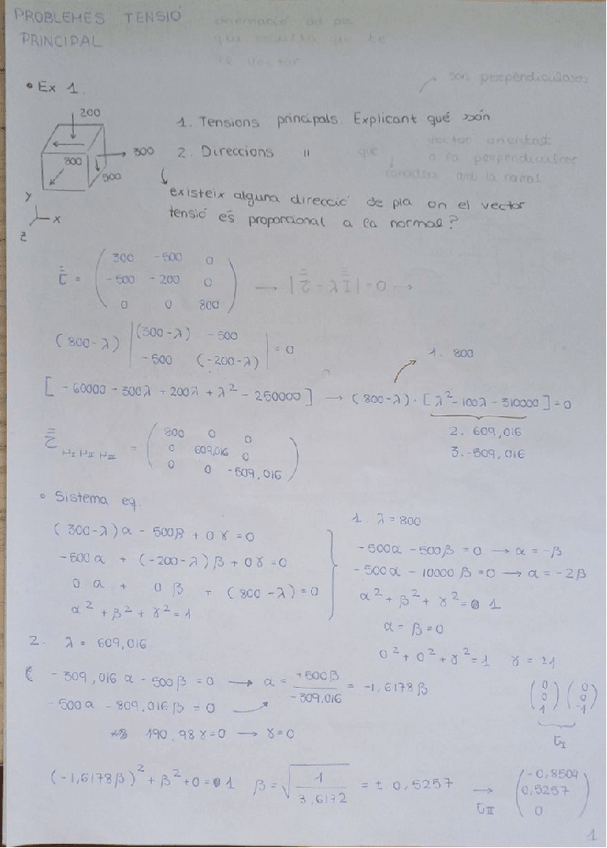 PROBLEMES TENSIÓ
PRINCIPAL
son perpendiculares
• Ex 1.
200
300
800
500
y
x
z
1. Tensions principals. Explicant què són
2. Direccions "
existeix alguna direcció de pla on el vector
tensió és proporcional a la normal?
τ = ( 300 -500 0
-500 -200 0
0 0 800 ) → |τ - λI| = 0 →
(800-λ) | (300-λ) -500
-500 (-200-λ) | = 0
1. 800
[ -60000 - 300λ + 200λ + λ² - 250000 ] → (800-λ) · [λ² - 100λ - 310000] = 0
2. 609,016
3. -509,016
τ HI HII HIII = ( 800 0 0
0 609,016 0
0 0 -509,016 )
• Sistema eq.
(300-λ)α - 500β + 0γ = 0
-500α + (-200-λ)β + 0γ = 0
0α + 0β + (800-λ) = 0
α² + β² + γ² = 1
1. λ = 800
-500α - 500β = 0 → α = -β
-500α - 10000β = 0 → α = -2β
α² + β² + γ² = 1
α = β = 0
0² + 0² + γ² = 1 γ = ±1
(0 0 1) (0 0 -1)
τI
2. λ = 609,016
-309,016α - 500β = 0 → α = +500β / -309,016 = -1,6178β
-500α - 809,016β = 0
190,98γ = 0 → γ = 0
(-1,6178β)² + β² + 0 = 1 β = √ 1 / 3,6172 = ± 0,5257 → τII (-0,8504
0,5257
0)
1